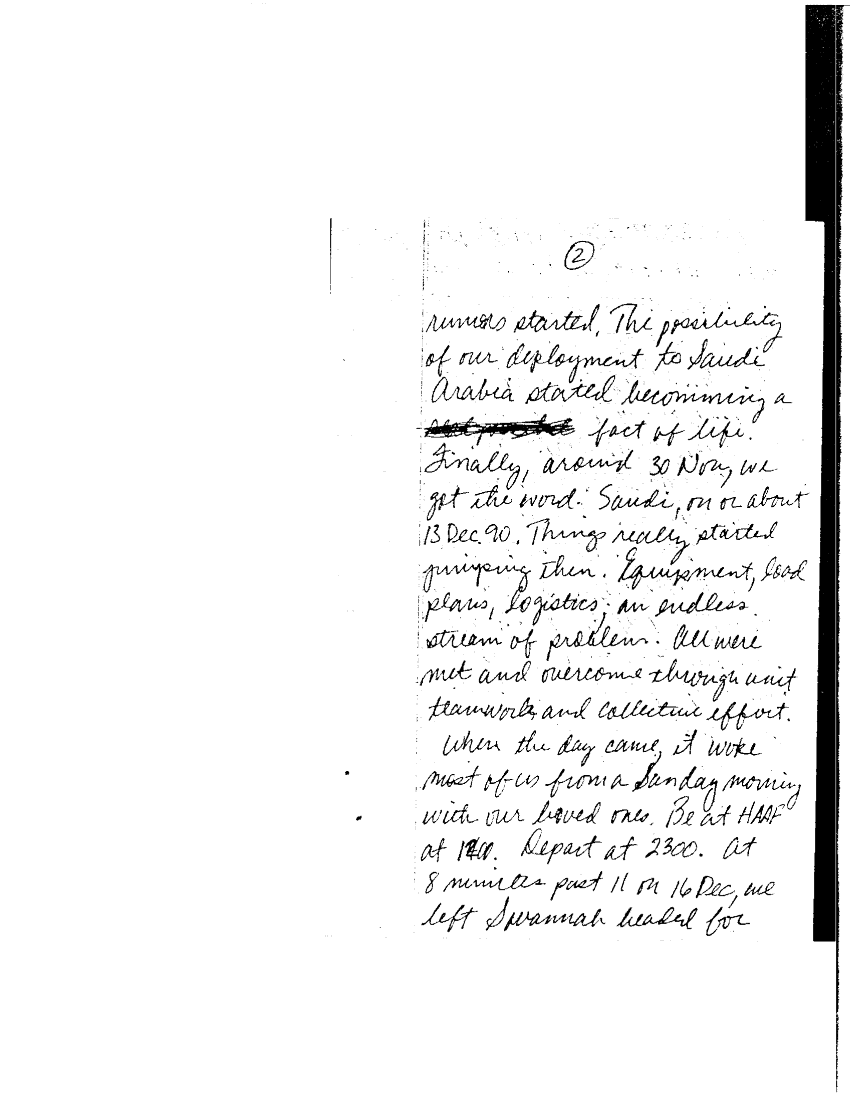 2
rumors started. The possibility
of our deployment to Saudi
Arabia started becomming a
fact of life.
Finally, around 30 Nov, we
got the word. Saudi, on or about
13 Dec. 90. Things really started
jumping then. Equipment, load
plans, logistics; an endless
stream of problems. All were
met and overcome through unit
teamwork and collective effort.
When the day came, it woke
most of us from a Sunday morning
with our loved ones. Be at HAAF
at
Depart at 2300. At
8 minutes past 11 on 16 Dec, we
left Savannah headed for